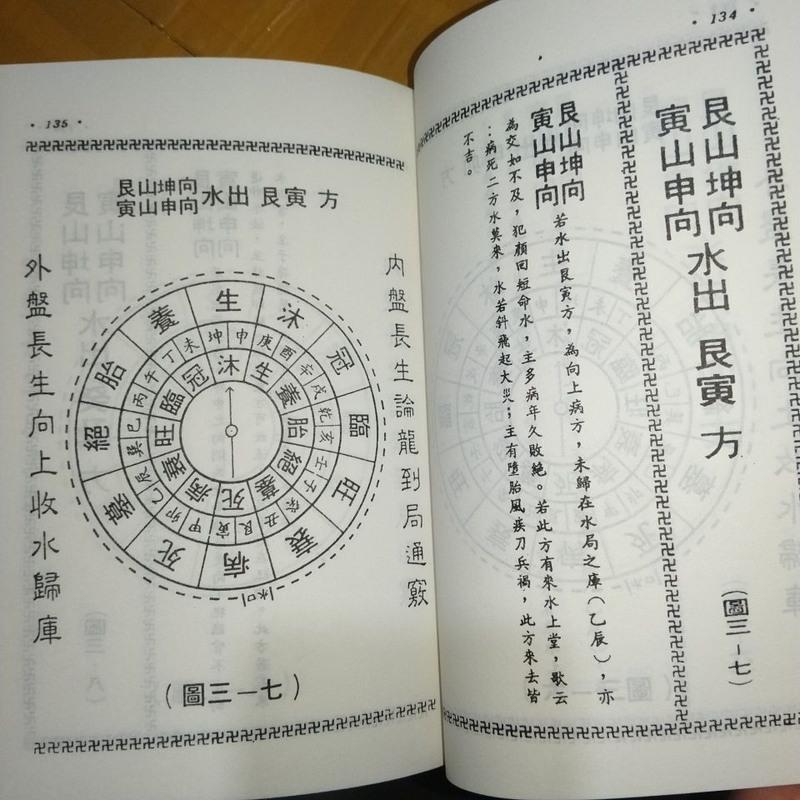 • 134 •
艮山坤向
寅山申向
水出 艮寅 方
(圖三—七)
艮山坤向
寅山申向
若水出艮寅方,為向上病方,未歸在水局之庫(乙辰),亦
為交如不及,犯顏回短命水,主多病年久敗絕。若此方有來水上堂,歌云
:病死二方水莫來,水若斜飛起大災;主有墮胎風疾刀兵禍,此方來去皆
不吉。
• 135 •
艮山坤向
寅山申向
水出 艮寅 方
內盤長生論龍到局通竅
生 沐 冠 臨 旺 衰 病 死 墓 絕 胎 養
坤 申 庚 酉 辛 戌 乾 亥 壬 子 癸 丑 艮 寅 甲 卯 乙 辰 巽 巳 丙 午 丁 未
沐 生 養 胎 絕 墓 死 病 衰 旺 臨 冠
水口
外盤長生向上收水歸庫
(圖三—七)